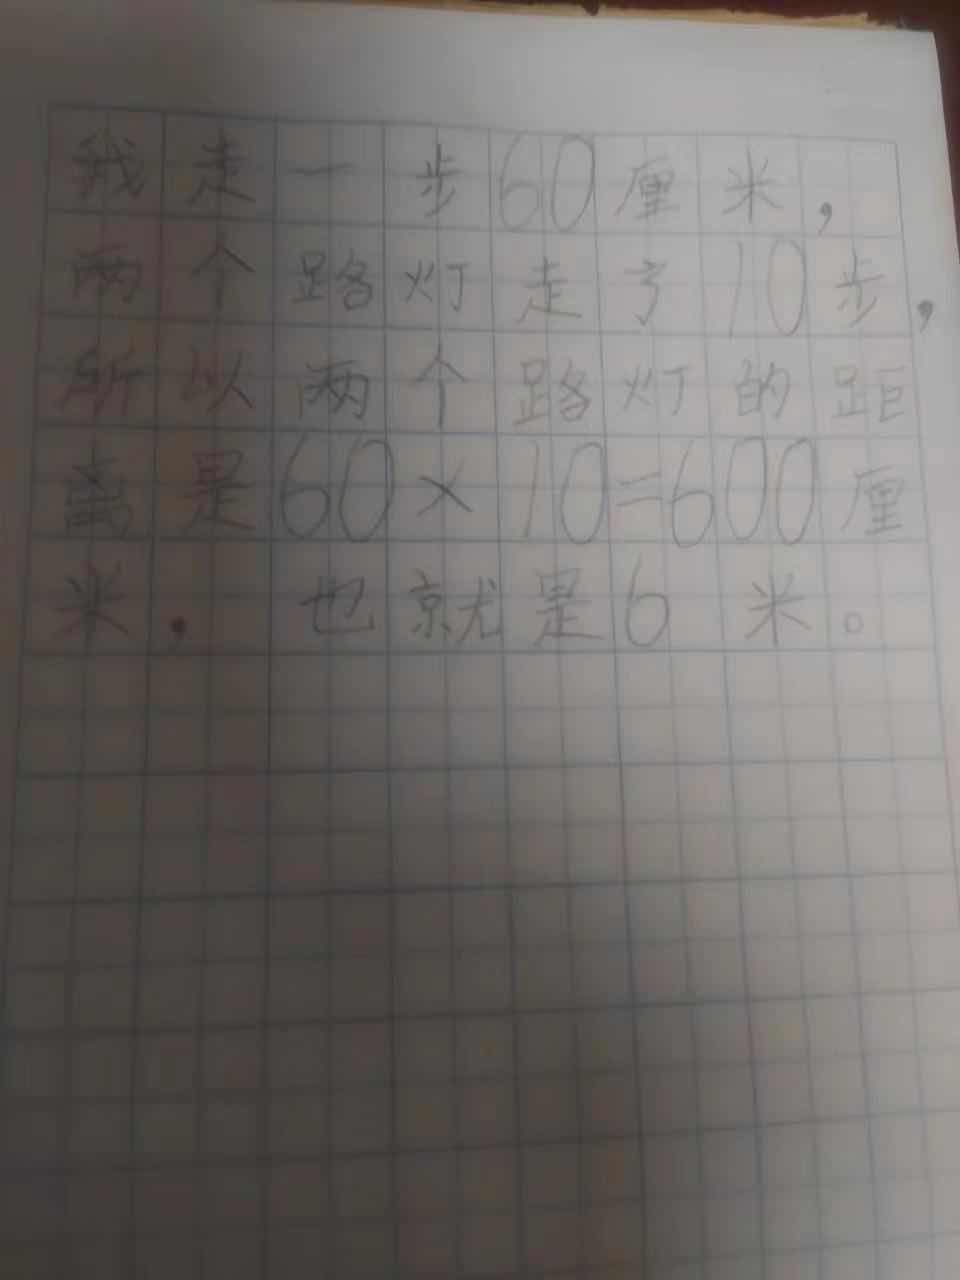 我走一步60厘米，
两个路灯走了10步，
所以两个路灯的距
离是60×10=600厘
米. 也就是6米。